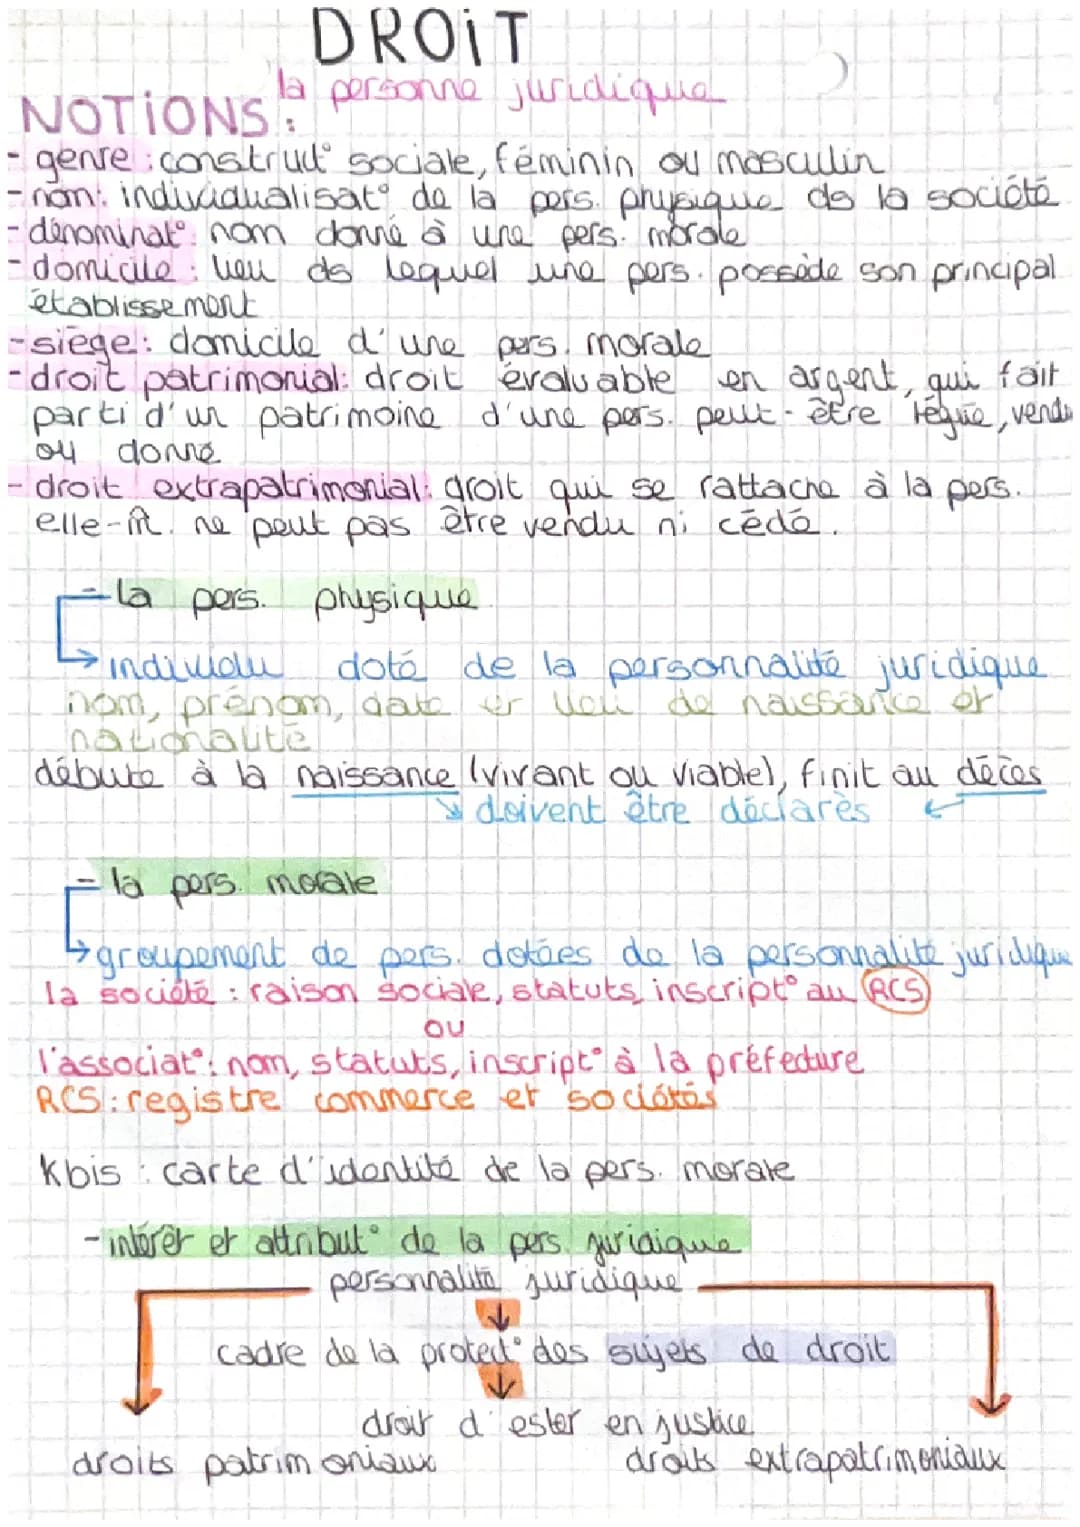 DROIT
la personne juridique
NOTIONS :
- genre : construct° sociale, féminin ou masculin
- nom : individualisat° de la pers. physique ds la société
- dénominat° : nom donné à une pers. morale
- domicile : lieu ds lequel une pers. possède son principal
établissement
- siège : domicile d'une pers. morale
- droit patrimonial : droit évaluable en argent, qui fait
parti d'un patrimoine d'une pers. peut-être légué, vendu
ou donné
- droit extrapatrimonial : droit qui se rattache à la pers.
elle-m̂. ne peut pas être vendu ni cédé.
- la pers. physique
↳ individu doté de la personnalité juridique
nom, prénom, date et lieu de naissance et
nationalité
débute à la naissance (vivant ou viable), finit au décès
↘ doivent être déclarés ↙
- la pers. morale
↳ groupement de pers. dotées de la personnalité juridique
la société : raison sociale, statuts, inscript° au RCS
ou
l'associat° : nom, statuts, inscript° à la préfecture
RCS : registre commerce et sociétés
Kbis : carte d'identité de la pers. morale
- intérêt et attribut° de la pers. juridique
personnalité juridique
↓
cadre de la protect° des sujets de droit
↓
droit d'ester en justice
droits patrimoniaux droits extrapatrimoniaux